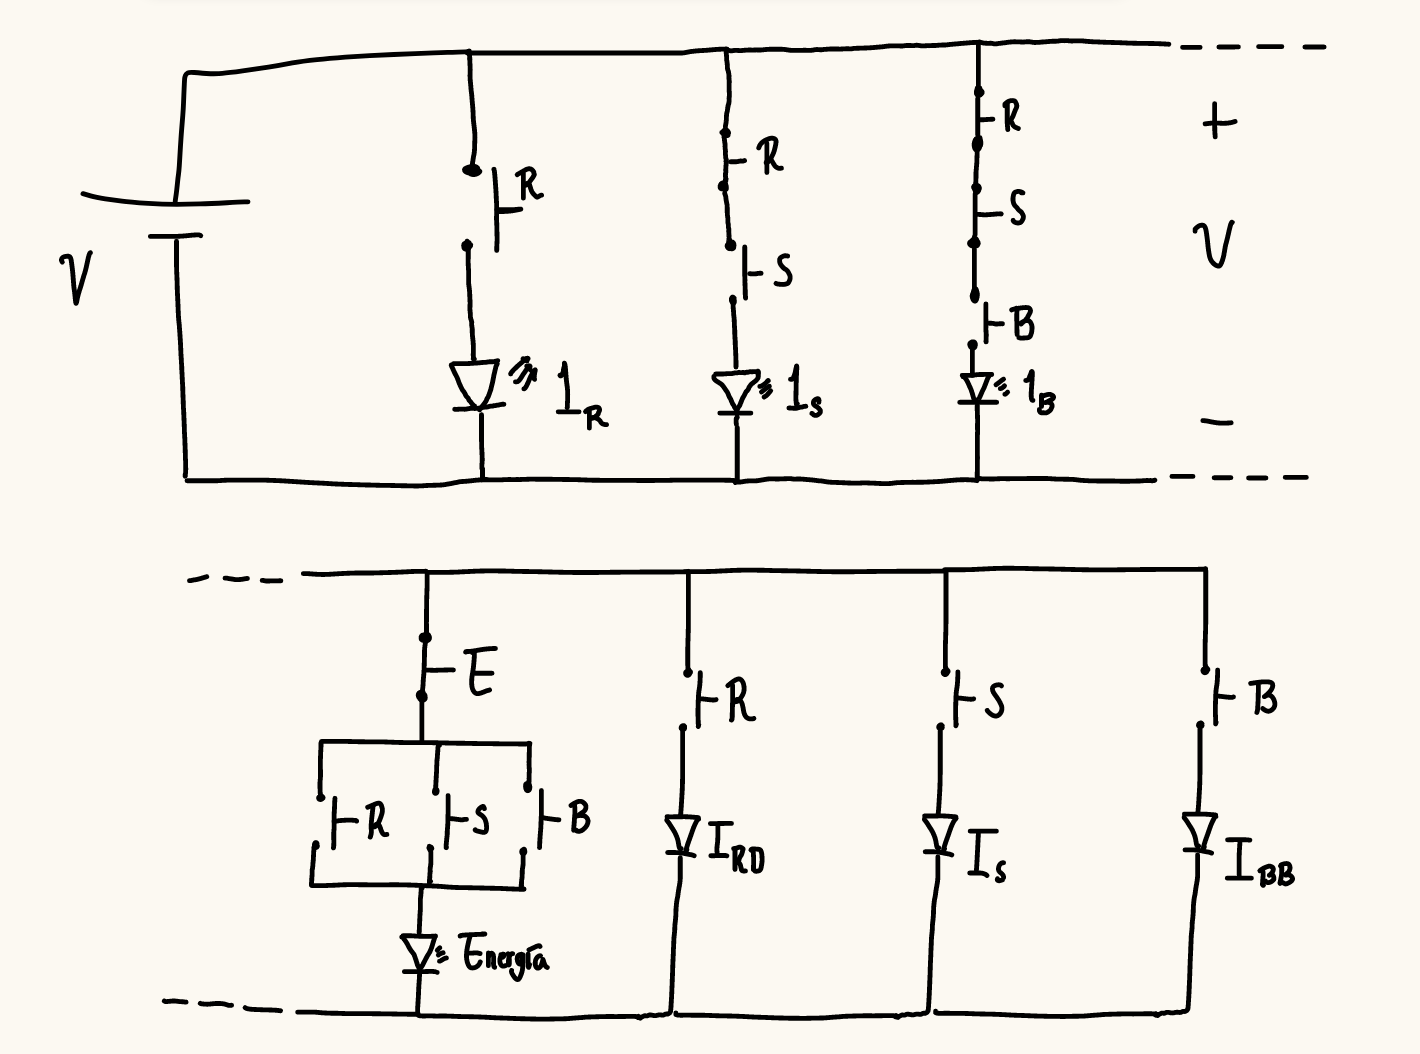 V
R
1R
R
S
1S
R
S
B
1B
+
V
−
E
R
S
B
Energía
R
IRD
S
IS
B
IBB